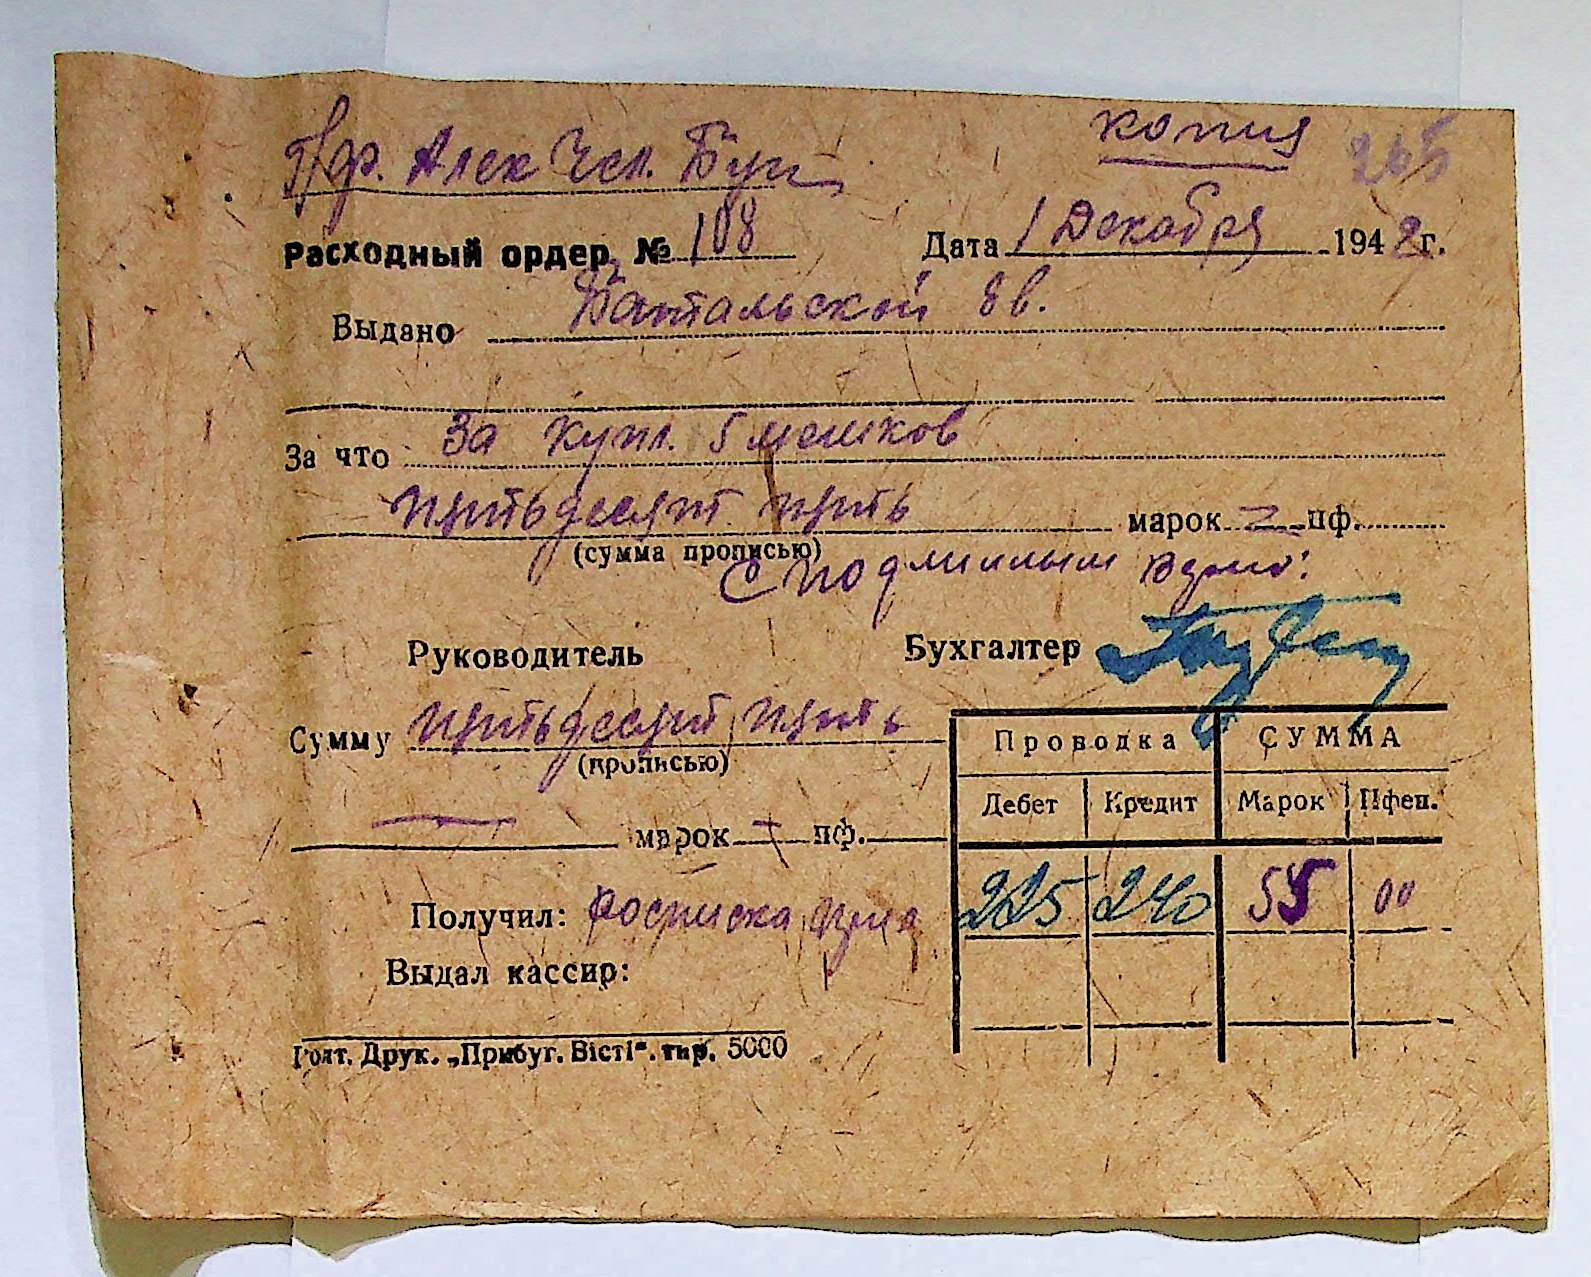 копия 265
Пр. Алек
Расходный ордер № 108 Дата 1 Декабря 1942 г.
Выдано Бантальской
За что За купл. 5 мешков
пятьдесят пять марок — пф.
(сумма прописью)
С подлинным верно:
Руководитель Бухгалтер
Сумму пятьдесят пять
(прописью)
— марок — пф.
Проводка СУММА
Дебет Кредит Марок Пфен.
225 240 55 00
Получил: росписка
Выдал кассир:
Голт. Друк. „Прибуг. Вісті“. тир. 5000